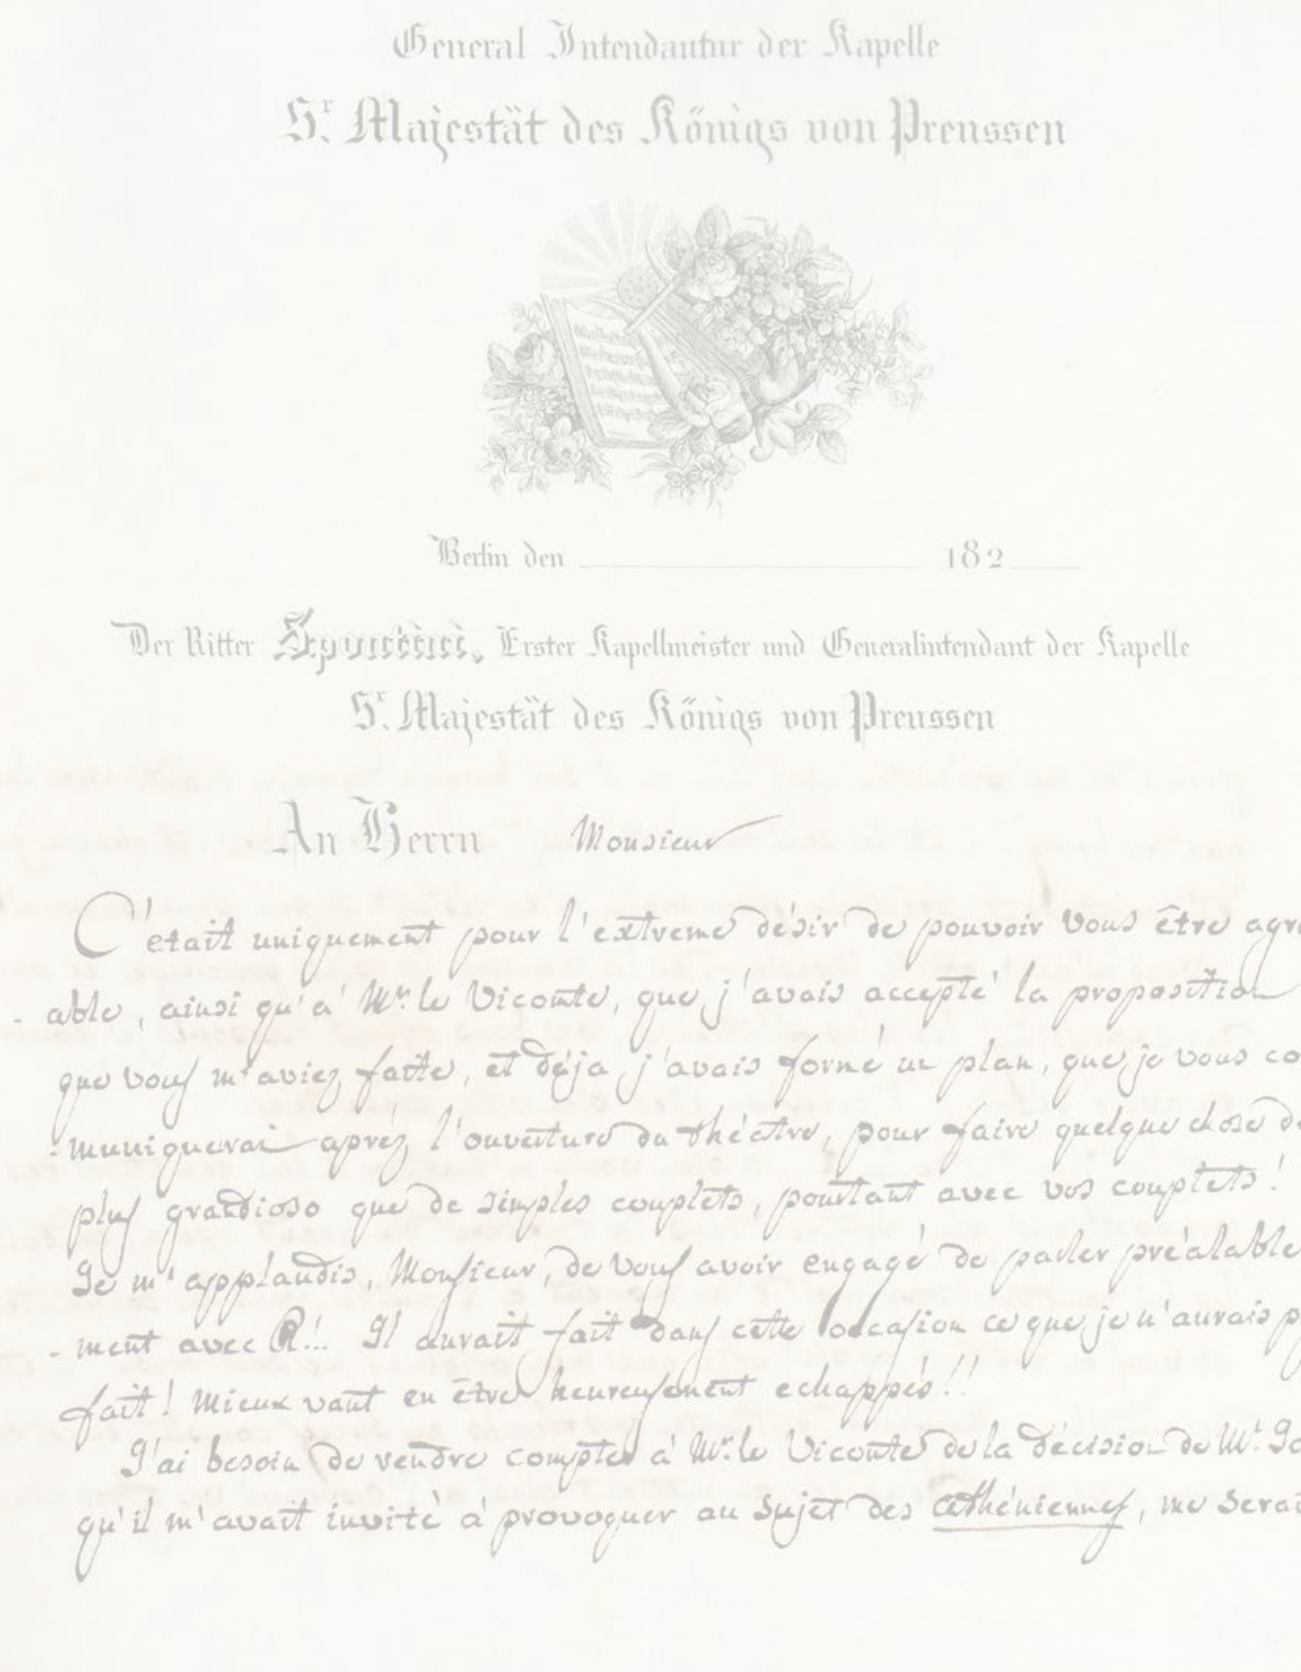 General Intendantur der Kapelle
Sr. Majestät des Königs von Preussen
Berlin den 182
Der Ritter Spontini, Erster Kapellmeister und Generalintendant der Kapelle
Sr. Majestät des Königs von Preussen
An Herrn Monsieur
C'était uniquement pour l'extreme désir de pouvoir vous être agré
- able, ainsi qu'à Mr. le Vicomte, que j'avais accepté la proposition
que vous m'aviez faite, et déja j'avais formé un plan, que je vous co
- muniquerai aprèz l'ouverture du théâtre, pour faire quelque chose de
plus grandioso que de simples couplets, pourtant avec vos couplets!
Je m'applaudis, Monsieur, de vous avoir engagé de parler préalable
- ment avec R!.. Il aurait fait dans cette occasion ce que je n'aurais p
fait! Mieux vaut en être heureusement echappés!!
J'ai besoin de rendre compte à Mr. le Vicomte de la décision de Mr.
qu'il m'avait invité à provoquer au sujet des athéniennes, me serai